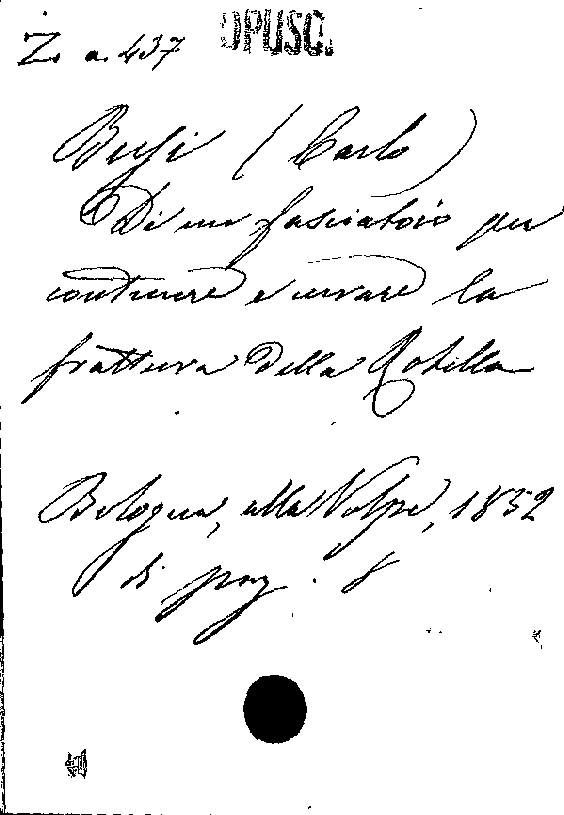 Z. a. 437 OPUSC.
Busi (Carlo)
Di un fasciatoio per
contenere e curvare la
frattura della Rotella
Bologna, alla Volpe, 1852
di pag. 8